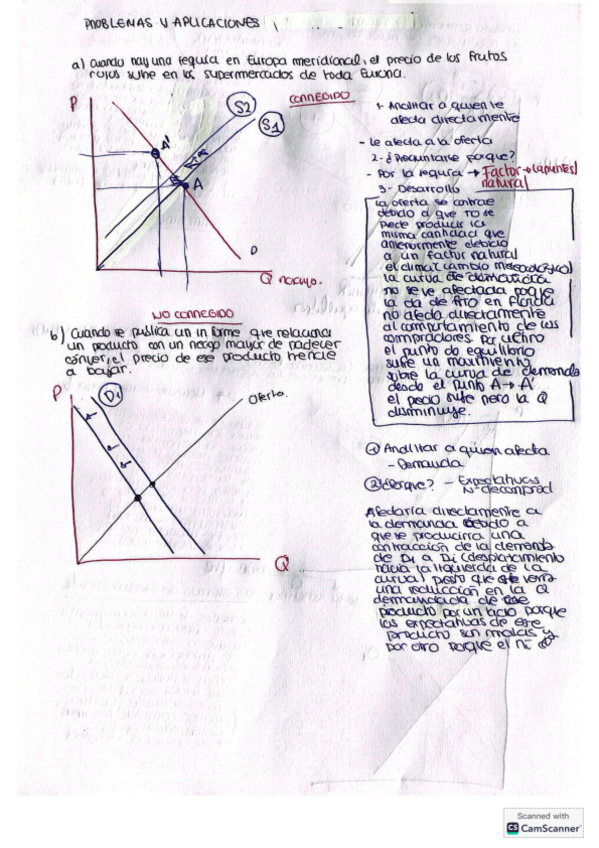 PROBLEMAS Y APLICACIONES
a) Cuando hay una sequía en Europa meridional, el precio de los frutos
rojos sube en los supermercados de toda Europa.
CORREGIDO
P
S2
S1
A'
A
D
Q
1- Analizar a quien le
afecta directamente
- Le afecta a la oferta
2- ¿Preguntarse porque?
- Por la sequía → Factor → (apuntes)
natural
3- Desarrollo
La oferta se contrae
debido a que no se
puede producir la
misma cantidad que
anteriormente debido
a un factor natural
el clima (cambio meteorológico)
la curva de demanda
no se ve afectada porque
la de frio en Florida
no afecta directamente
al comportamiento de los
compradores. Por ultimo
el punto de equilibrio
sufre un movimiento
sobre la curva de demanda
desde el punto A → A'
el precio sube pero la Q
disminuye.
NO CORREGIDO
b) Cuando se publica un informe que relaciona
un producto con un riesgo mayor de padecer
cáncer, el precio de ese producto tiende
a bajar.
P
D1
Oferta.
Q
① Analizar a quien afecta
- Demanda
② ¿Porque? - Expectativas
Nº de comprad
Afectaría directamente a
la demanda debido a
que se producirra una
contracción de la demanda
de D1 a Di (desplazamiento
hacia la izquierda de la
curva) puesto que se verra
una reducción en la Q
demandada de ese
producto por un lado porque
las expectativas de ese
producto son malas y
por otro porque el nº
Scanned with
CS CamScanner